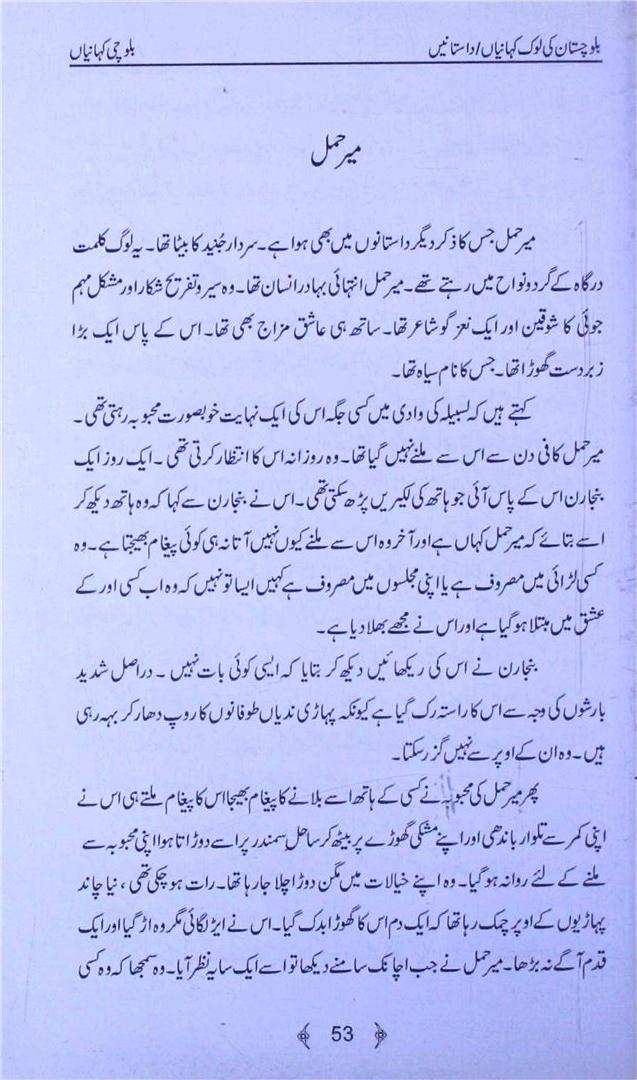 بلوچستان کی لوک کہانیاں/داستانیں
بلوچی کہانیاں
میر حمل
میر حمل جس کا ذکر دیگر داستانوں میں بھی ہوا ہے۔ سردار جُنید کا بیٹا تھا۔ یہ لوگ کلمت
درگاہ کے گرد و نواح میں رہتے تھے۔ میر حمل انتہائی بہادر انسان تھا۔ وہ سیر و تفریح شکار اور مشکل مہم
جوئی کا شوقین اور ایک نغز گو شاعر تھا۔ ساتھ ہی عاشق مزاج بھی تھا۔ اس کے پاس ایک بڑا
زبردست گھوڑا تھا۔ جس کا نام سیاہ تھا۔
کہتے ہیں کہ لسبیلہ کی وادی میں کسی جگہ اس کی ایک نہایت خوبصورت محبوبہ رہتی تھی۔
میر حمل کافی دن سے اس سے ملنے نہیں گیا تھا۔ وہ روزانہ اس کا انتظار کرتی تھی۔ ایک روز ایک
بنجارن اس کے پاس آئی جو ہاتھ کی لکیریں پڑھ سکتی تھی۔ اس نے بنجارن سے کہا کہ وہ ہاتھ دیکھ کر
اسے بتائے کہ میر حمل کہاں ہے اور آخر وہ اس سے ملنے کیوں نہیں آتا نہ ہی کوئی پیغام بھیجتا ہے۔ وہ
کسی لڑائی میں مصروف ہے یا اپنی مجلسوں میں مصروف ہے کہیں ایسا تو نہیں کہ وہ اب کسی اور کے
عشق میں مبتلا ہو گیا ہے اور اس نے مجھے بھلا دیا ہے۔
بنجارن نے اس کی ریکھائیں دیکھ کر بتایا کہ ایسی کوئی بات نہیں۔ دراصل شدید
بارشوں کی وجہ سے اس کا راستہ رک گیا ہے کیونکہ پہاڑی ندیاں طوفانوں کا روپ دھار کر بہہ رہی
ہیں۔ وہ ان کے اوپر سے نہیں گزر سکتا۔
پھر میر حمل کی محبوبہ نے کسی کے ہاتھ اسے بلانے کا پیغام بھیجا اس کا پیغام ملتے ہی اس نے
اپنی کمر سے تلوار باندھی اور اپنے مشکی گھوڑے پر بیٹھ کر ساحلِ سمندر پر اسے دوڑاتا ہوا اپنی محبوبہ سے
ملنے کے لئے روانہ ہو گیا۔ وہ اپنے خیالات میں مگن دوڑا چلا جا رہا تھا۔ رات ہو چکی تھی، نیا چاند
پہاڑیوں کے اوپر چمک رہا تھا کہ ایک دم اس کا گھوڑا بدک گیا۔ اس نے ایڑ لگائی مگر وہ اڑ گیا اور ایک
قدم آگے نہ بڑھا۔ میر حمل نے جب اچانک سامنے دیکھا تو اسے ایک سایہ نظر آیا۔ وہ سمجھا کہ وہ کسی
53